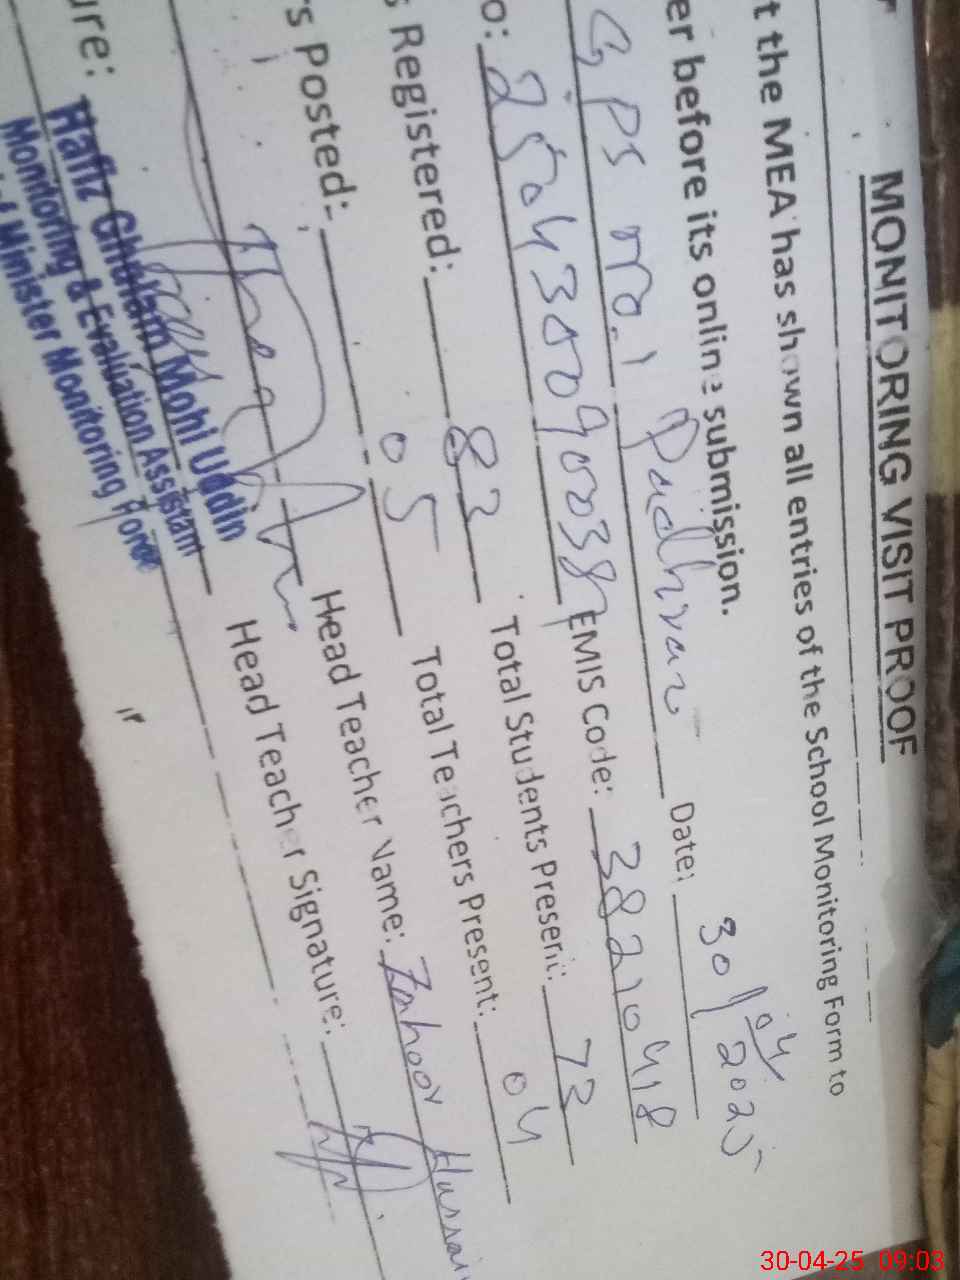 MONITORING VISIT PROOF
t the MEA has shown all entries of the School Monitoring Form to
er before its online submission.
GPS No.1 Date: 30/04/2025
o: EMIS Code: 38210418
s Registered: 82 Total Students Present: 73
s Posted: 05 Total Teachers Present: 04
Head Teacher Name: Zahoor Hussain
ure: Head Teacher Signature:
Hafiz Ghulam Mohi Uddin
Monitoring & Evaluation Assistant
Minister Monitoring Force
30-04-25 09:03